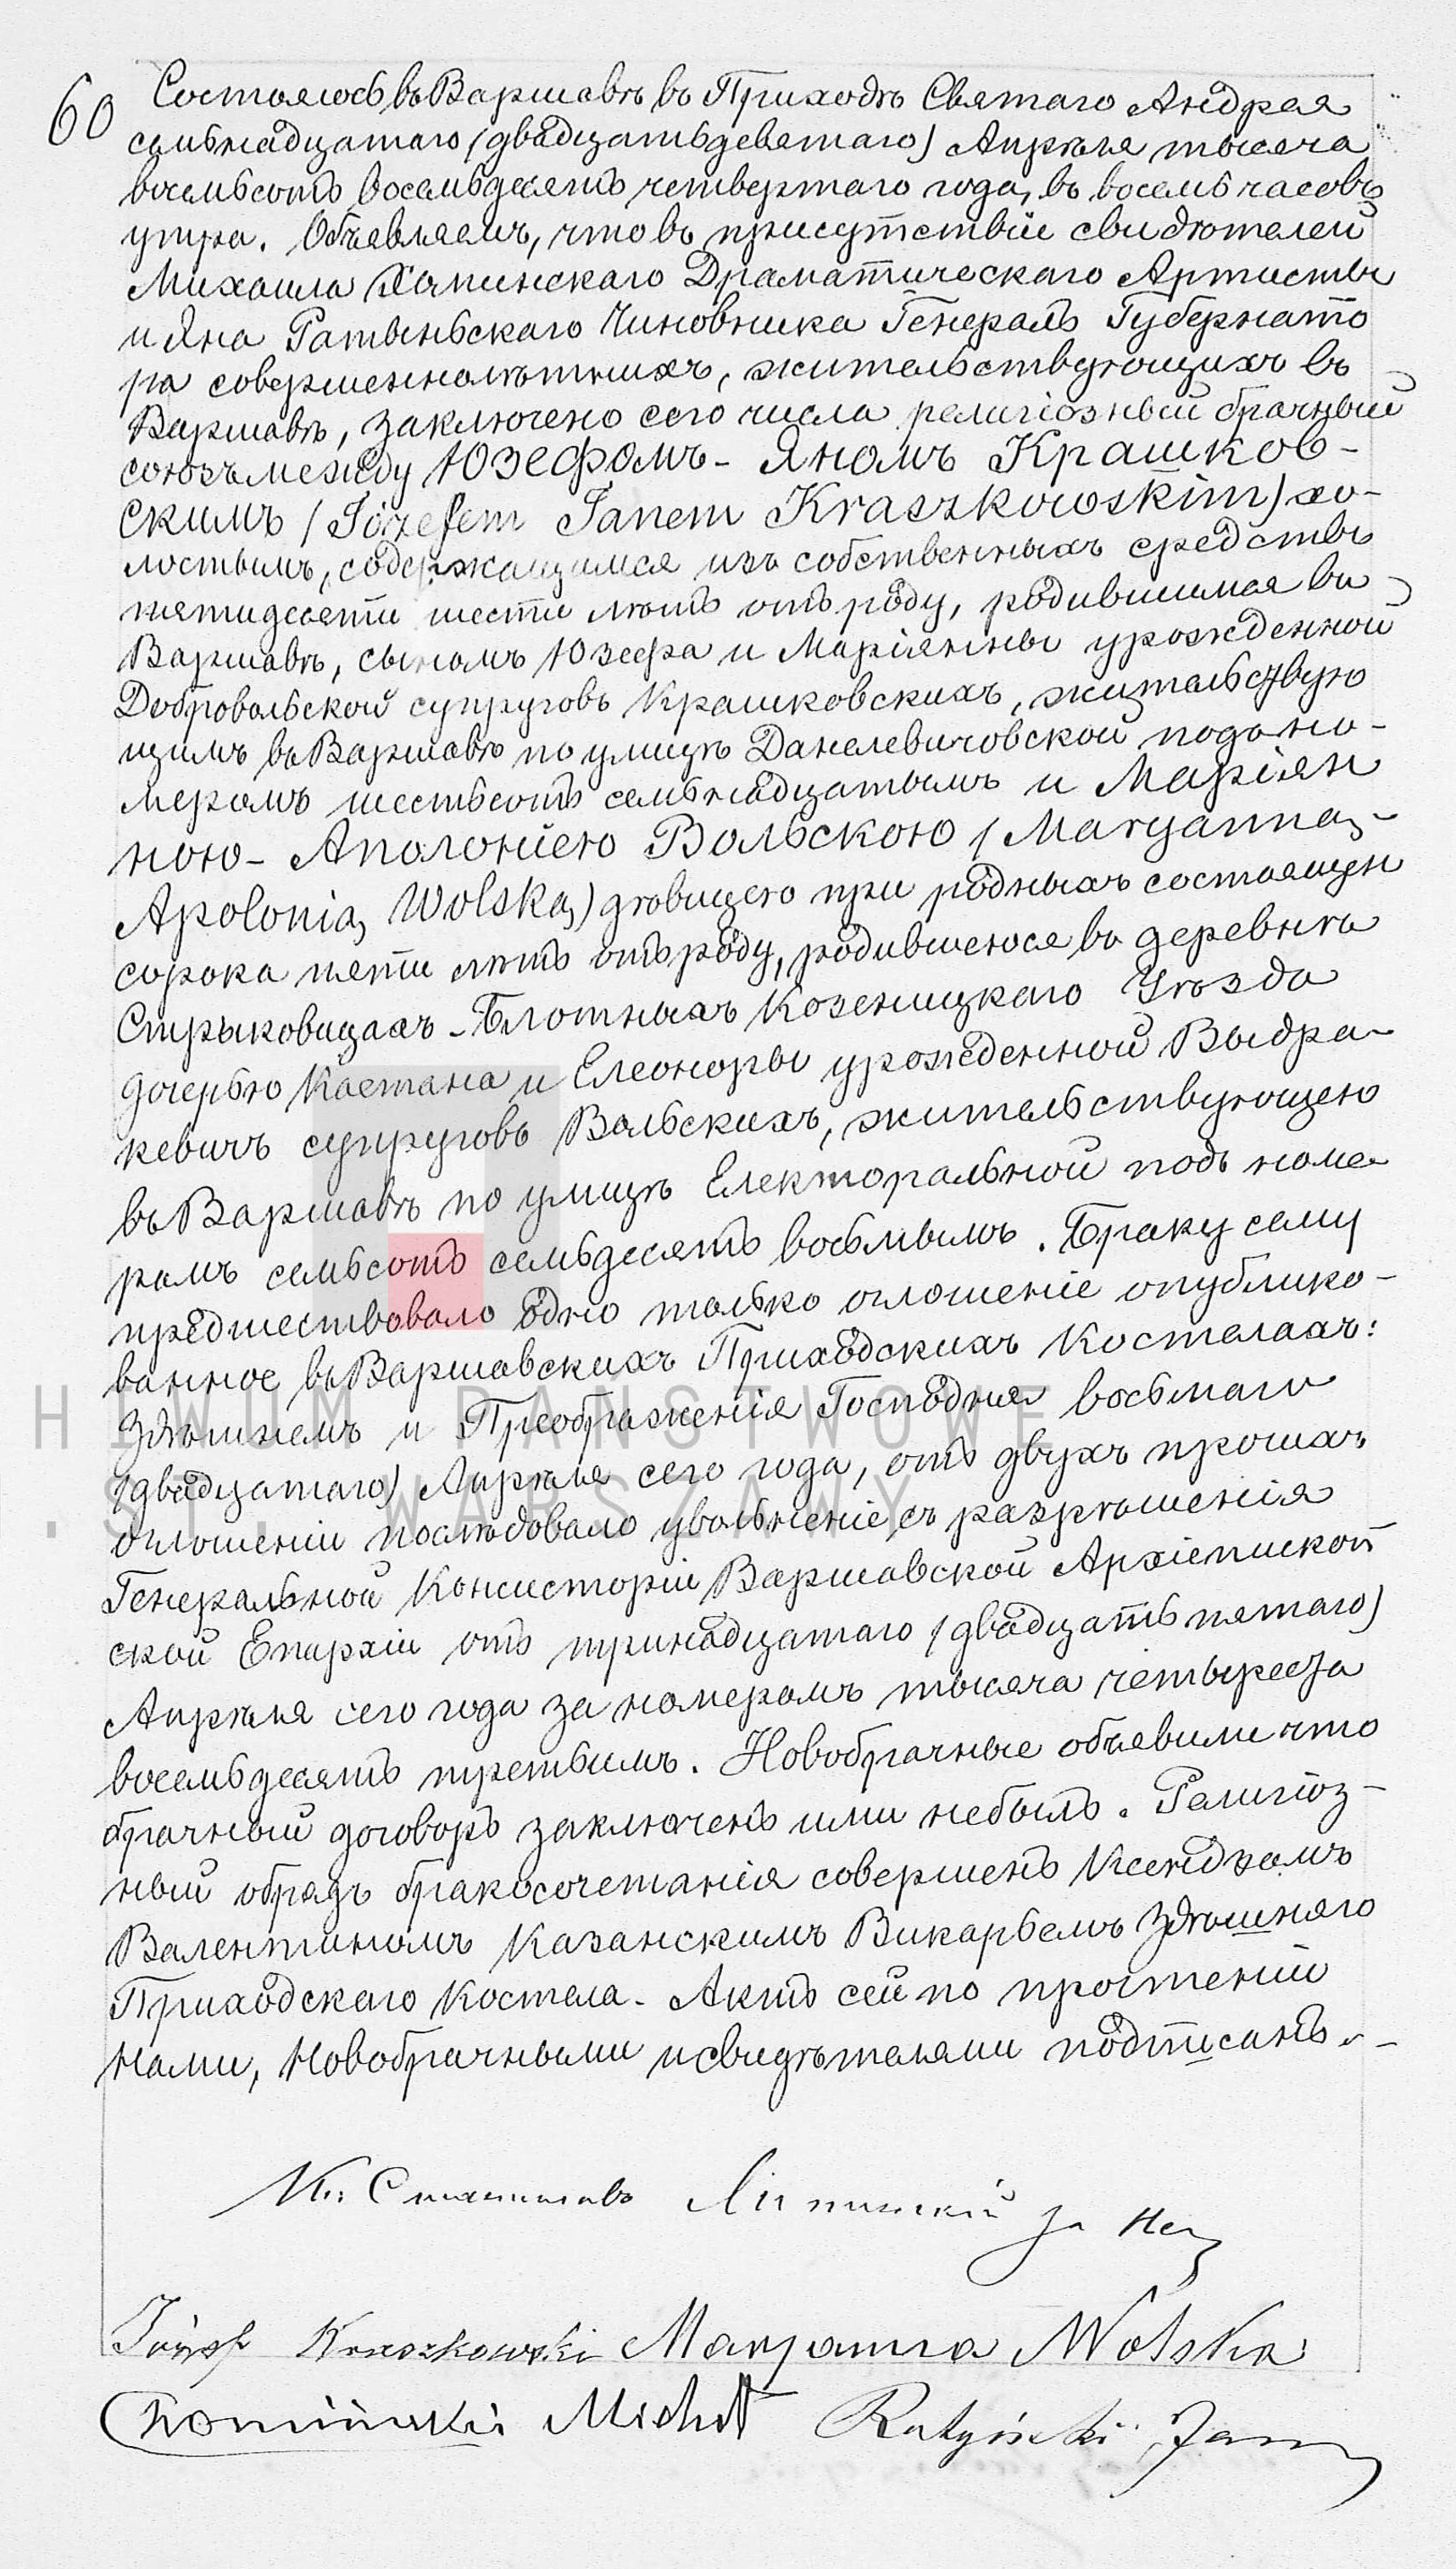 60
Состоялось въ Варшавѣ въ Приходѣ Святаго Андрея
семьнадцатаго (двадцатьдевятаго) Апрѣля тысяча
восемьсотъ восемьдесятъ четвертаго года, въ восемь часовъ
утра. Объявляемъ, что въ присутствіи свидѣтелей
Михаила Хоминскаго Драматическаго Артисты
и Яна Ратыньскаго Чиновника Генералъ Губернато
ра совершеннолѣтнихъ, жительствующихъ въ
Варшавѣ, заключено сего числа религіозный брачный
союзъ между Юзефомъ - Яномъ Крашков-
скимъ (Józefem Janem Kraszkowskim) хо-
лостымъ, содержащимся изъ собственныхъ средствъ
пятидесяти шести лѣтъ отъ роду, родившимся въ
Варшавѣ, сыномъ Юзефа и Маріянны урожденной
Добровольской супруговъ Крашковскихъ, жительствую
щимъ въ Варшавѣ по улицѣ Данелевичовской подъ но-
меромъ шестьсотъ семьнадцатымъ и Маріян
ною - Аполоніею Вольскою (Maryanną-
Apolonią Wolską) дѣвицею при родныхъ состоящей
сорока пяти лѣтъ отъ роду, родившеюся въ деревнѣ
Стрыковицахъ - Блотныхъ Козеницкаго Уѣзда
дочерью Каетана и Елеоноры урожденной Выдра-
кевичъ супруговъ Вольскихъ, жительствующею
въ Варшавѣ по улицѣ Електоральной подъ номе-
ромъ семьсотъ семьдесятъ восьмымъ. Браку сему
предшествовало одно только оглошеніе опублико-
ванное въ Варшавскихъ Приходскихъ Костелахъ:
Здѣшнемъ и Преображенія Господня восьмаго
(двадцатаго) Апрѣля сего года, отъ двухъ прочихъ
оглошеніи послѣдовало увольненіе, съ разрѣшенія
Генеральной Консисторіи Варшавской Архіепископ
ской Епархіи отъ тринадцатаго (двадцать пятаго)
Апрѣля сего года за номеромъ тысяча четыреста
восемьдесятъ третьимъ. Новобрачные объявили что
брачный договоръ заключенъ ими небылъ. Религіоз-
ный обрядъ бракосочетанія совершенъ Ксендзомъ
Валентиномъ Казанскимъ Викарьемъ Здѣшняго
Приходскаго Костела. Актъ сей по прочтеніи
Нами, Новобрачными и свидѣтелями подписанъ. -
Кс: Станиславъ за
Józef Kraszkowski Maryanna Wolska
Chomiński Michał Ratyński Jan
HIWUM PAŃSTWOWE
.ST. WARSZAWY